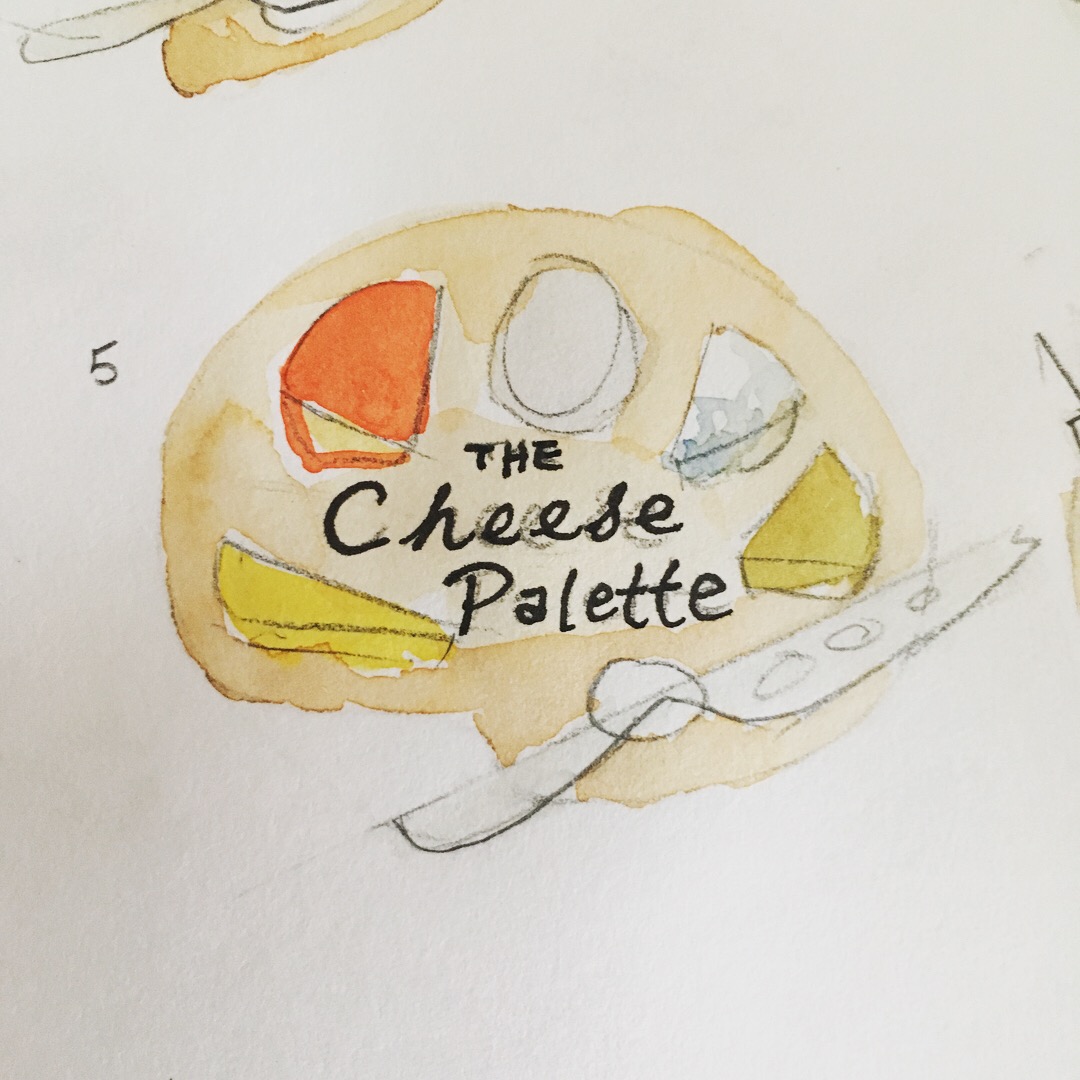 5
THE
Cheese
Palette